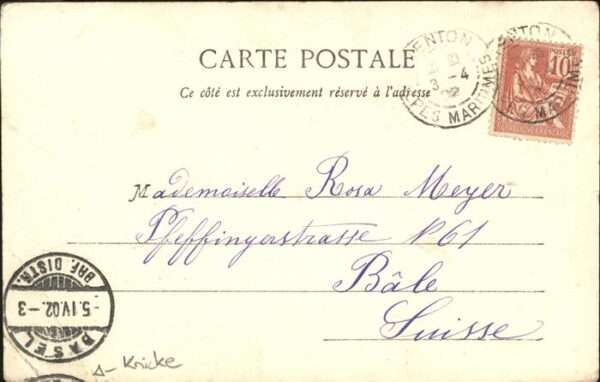 CARTE POSTALE
Ce côté est exclusivement réservé à l'adresse
MENTON
3 -4
02
ALPES MARITIMES
MENTON
POSTES
10
Mademoiselle Rosa Meyer
Pfeffingerstrasse № 61
Bâle
Suisse
BASEL
-5.IV.02.-3
BRF. DISTR.
△- Knicke